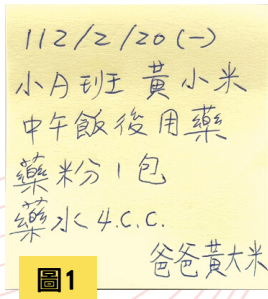 112/2/20(一)
小月班 黃小米
中午飯後用藥
藥粉1包
藥水4.C.C.
爸爸黃大米
圖1